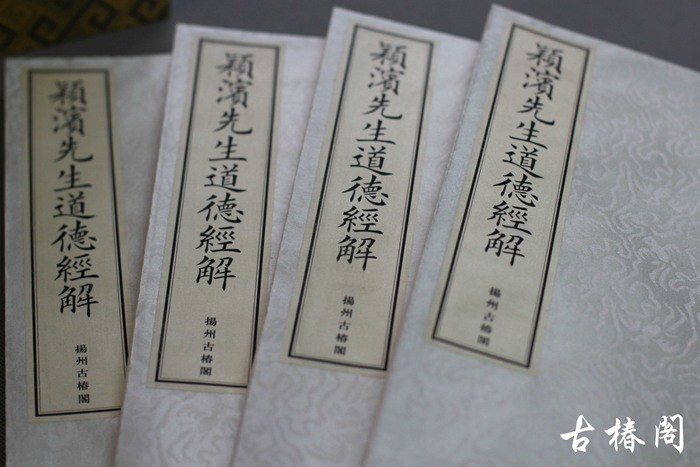 穎濱先生道德經解
揚州古椿閣
穎濱先生道德經解
揚州古椿閣
穎濱先生道德經解
揚州古椿閣
穎濱先生道德經解
揚州古椿閣
古椿阁